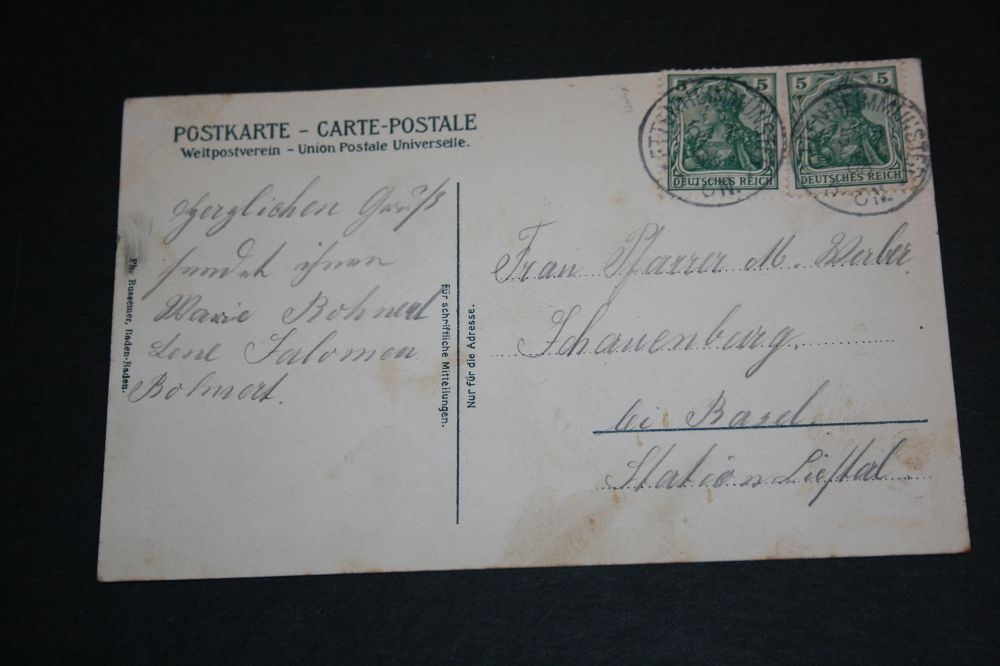 POSTKARTE – CARTE-POSTALE
Weltpostverein – Union Postale Universelle.
5 5
DEUTSCHES REICH
5 5
DEUTSCHES REICH
ETTENHEIMMÜNSTER
ETTENHEIMMÜNSTER
Herzlichen Gruß
sendet ihnen
Marie Bohnert
Lene Salomea
Bohnert.
Ph. Bussemer, Baden-Baden.
für schriftliche Mitteilungen.
Nur für die Adresse.
Frau Pfarrer M. Werber
Schauenberg.
bei Basel.
Station Liestal